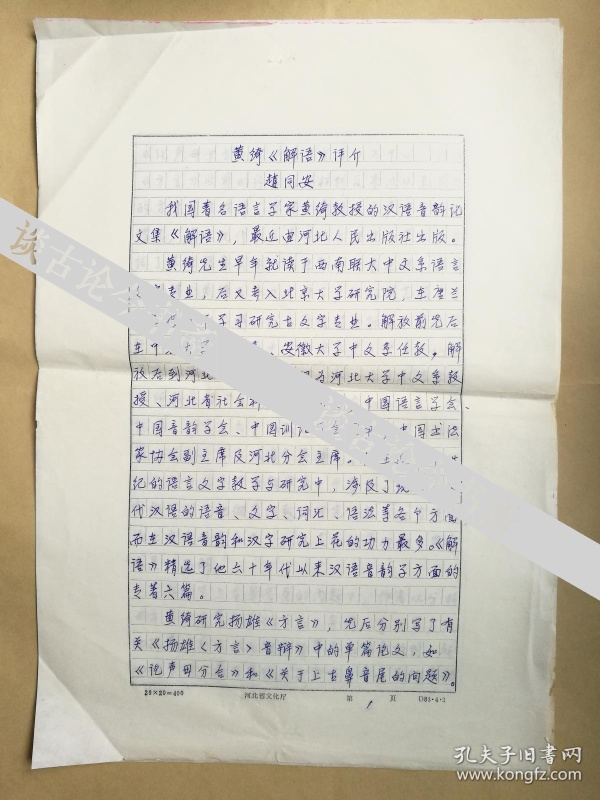 黄绮《解语》评介
赵同安
我国著名语言学家黄绮教授的汉语音韵论
文集《解语》，最近由河北人民出版社出版。
黄绮先生早年就读于西南联大中文系语言
专业，后又考入北京大学研究院，在唐兰
学习研究古文字专业。解放前先后
在中 大学 、安徽大学中文系任教。解
放后到河北 为河北大学中文系教
授、河北省社会科 中国语言学会、
中国音韵学会、中国训 中国书法
家协会副主席及河北分会主席。
纪的语言文字教学与研究中，涉及了
代汉语的语音、文字、词汇、语法等各个方面
而在汉语音韵和汉字研究上花的功力最多。《解
语》精选了他六十年代以来汉语音韵学方面的
专著六篇。
黄绮研究扬雄《方言》，先后分别写了有
关《扬雄〈方言〉音辩》中的单篇论文，如
《论声母分合》和《关于上古鼻音尾的问题》。
20×20=400 河北省文化厅 第 1 页
谈古论今
孔夫子旧书网
www.kongfz.com